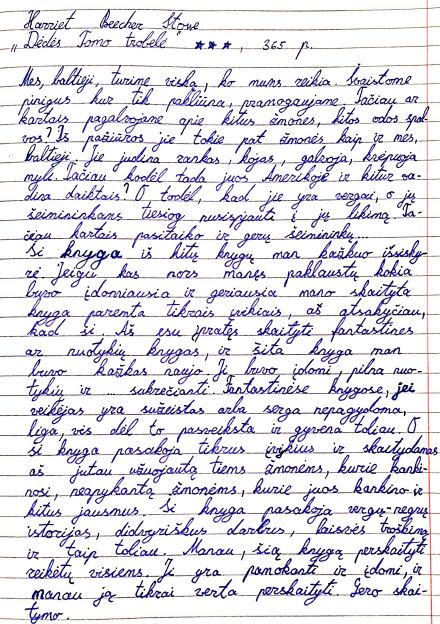 Harriet Beecher Stowe
„Dėdės Tomo trobelė" ★★★, 365 p.
Mes, baltieji, turime viską, ko mums reikia. Švaistome
pinigus kur tik pakliūna, pramogaujame. Tačiau ar
kartais pagalvojame apie kitus žmones, kitos odos spal-
vos? Iš pažiūros jie tokie pat žmonės kaip ir mes,
baltieji. Jie judina rankas, kojas, galvoja, kvėpuoja
myli. Tačiau kodėl tada juos Amerikoje ir kitur va-
dina daiktais? O todėl, kad jie yra vergai, o jų
šeimininkams tiesiog nusispjauti į jų likimą. Ta-
čiau kartais pasitaiko ir gerų šeimininkų...
Ši knyga iš kitų knygų man kažkuo išsisky-
rė. Jeigu kas nors manęs paklaustų kokia
buvo įdomiausia ir geriausia mano skaityta
knyga paremta tikrais įvykiais, aš atsakyčiau,
kad ši. Aš esu įpratęs skaityti fantastines
ar nuotykių knygas, ir šita knyga man
buvo kažkas naujo. Ji buvo įdomi, pilna nuo-
tykių ir ... sukrečianti. Fantastinėse knygose, jei
veikėjas yra sužeistas arba serga nepagydoma,
liga, vis dėl to pasveiksta ir gyvena toliau. O
ši knyga pasakoja tikrus įvykius ir skaitydamas
aš jutau užuojautą tiems žmonėms, kurie kanki-
nosi, neapykantą žmonėms, kurie juos kankino ir
kitus jausmus. Ši knyga pasakoja vergų-negrų
istorijas, didvyriškus darbus, laisvės troškimą
ir taip toliau. Manau, šią knygą perskaityti
reikėtų visiems. Ji yra pamokanti ir įdomi, ir
manau ją tikrai verta perskaityti. Gero skai-
tymo.